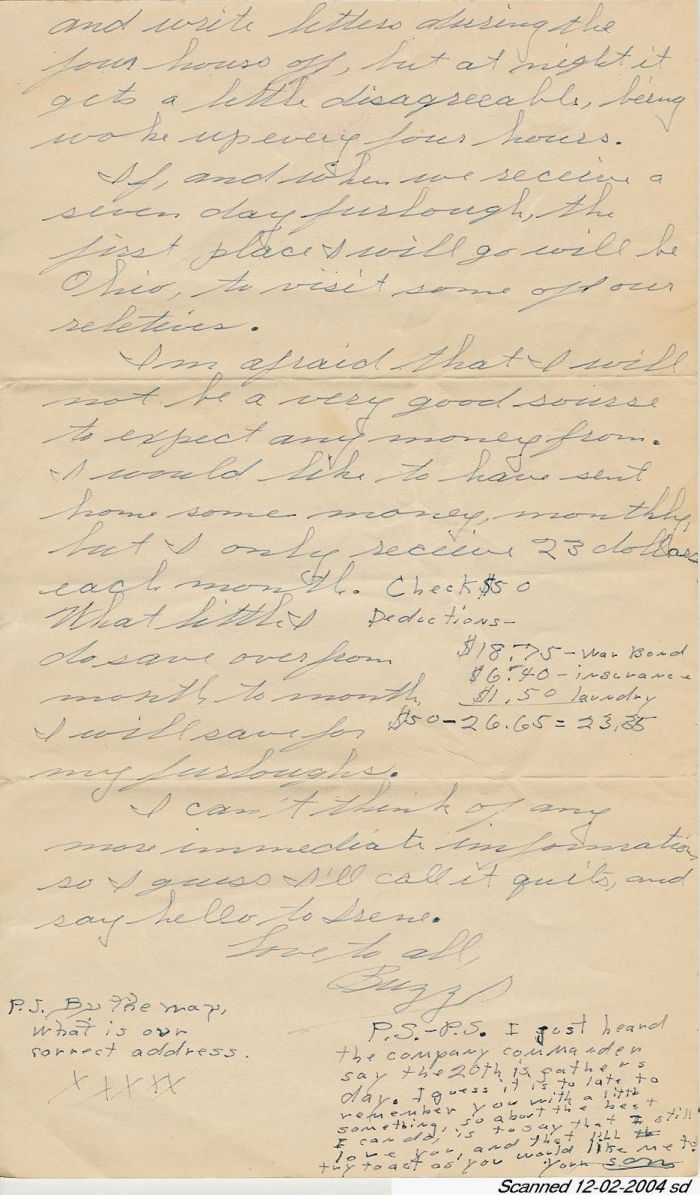 and write letters during the
four hours off, but at night it
gets a little disagreeable, being
woke up every four hours.
If, and when we receive a
seven day furlough, the
first place I will go will be
Ohio, to visit some of our
reletives.
I'm afraid that I will
not be a very good sourse
to expect any money from.
I would like to have sent
home some money, monthly,
but I only receive 23 dollars
each month. Check $50
What little I Deductions-
do save over from $18.75 - War Bond
$6.40 - insurance
month to month $1.50 laundry
I will save for $50 - 26.65 = 23.35
my furloughs.
I can't think of any
more immediate information,
so I guess I'll call it quits, and
say hello to Irene.
Love to all,
Buzz
P.S. By the way,
what is our
correct address.
XXXXX
P.S.-P.S. I just heard
the company commander
say the 20th is fathers
day. I guess it is to late to
remember you with a little
something, so about the best
I can do, is to say that I still
love you, and that I'll
try to act as you would like me to.
Your son
Scanned 12-02-2004 sd